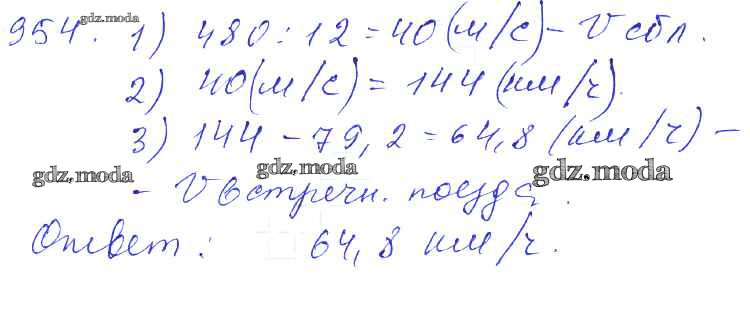 gdz.moda
954. 1) 480:12=40(м/с)- V сбл.
2) 40(м/с)=144(км/ч).
3) 144-79,2=64,8(км/ч)-
gdz.moda gdz.moda gdz.moda
- V встречн. поезда.
Ответ: 64,8 км/ч.